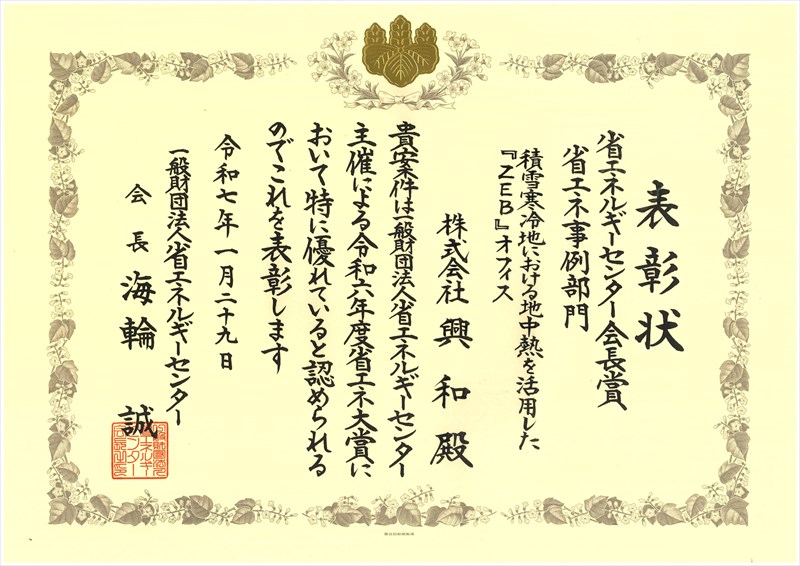 表彰状
省エネルギーセンター会長賞
省エネ事例部門
積雪寒冷地における地中熱を活用した
『ZEB』オフィス
株式会社 興和殿
貴案件は一般財団法人省エネルギーセンター
主催による令和六年度省エネ大賞に
おいて特に優れていると認められる
のでこれを表彰します
令和七年一月二十九日
一般財団法人省エネルギーセンター
会長 海輪 誠